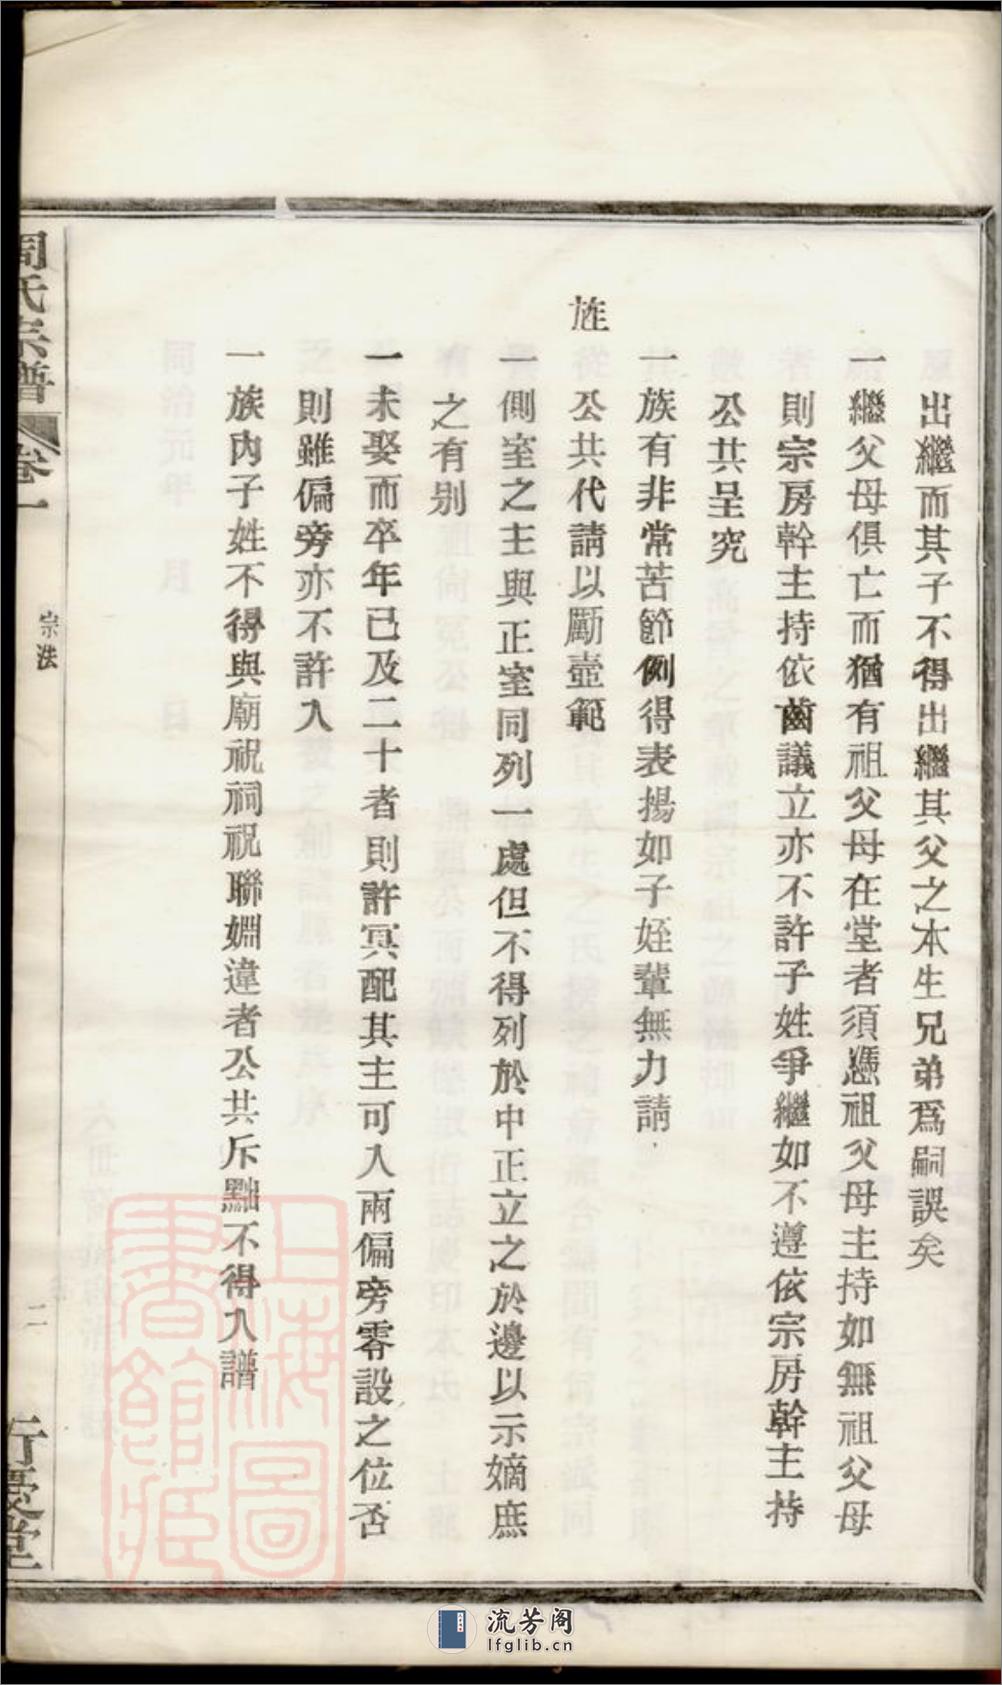 出繼而其子不得出繼其父之本生兄弟爲嗣誤矣
一繼父母俱亡而猶有祖父母在堂者須憑祖父母主持如無祖父母
則宗房幹主持依齒議立亦不許子姓爭繼如不遵依宗房幹主持
公共呈究
一族有非常苦節例得表揚如子姪輩無力請
旌
公共代請以勵壼範
一側室之主與正室同列一處但不得列於中正立之於邊以示嫡庶
之有别
一未娶而卒年已及二十者則許冥配其主可入兩偏旁零設之位否
則雖偏旁亦不許入
一族內子姓不得與廟祝祠祝聯婣違者公共斥黜不得入譜
周氏宗譜
卷一
宗法
二
行慶堂
上海圖書館藏
流芳阁
lfglib.cn